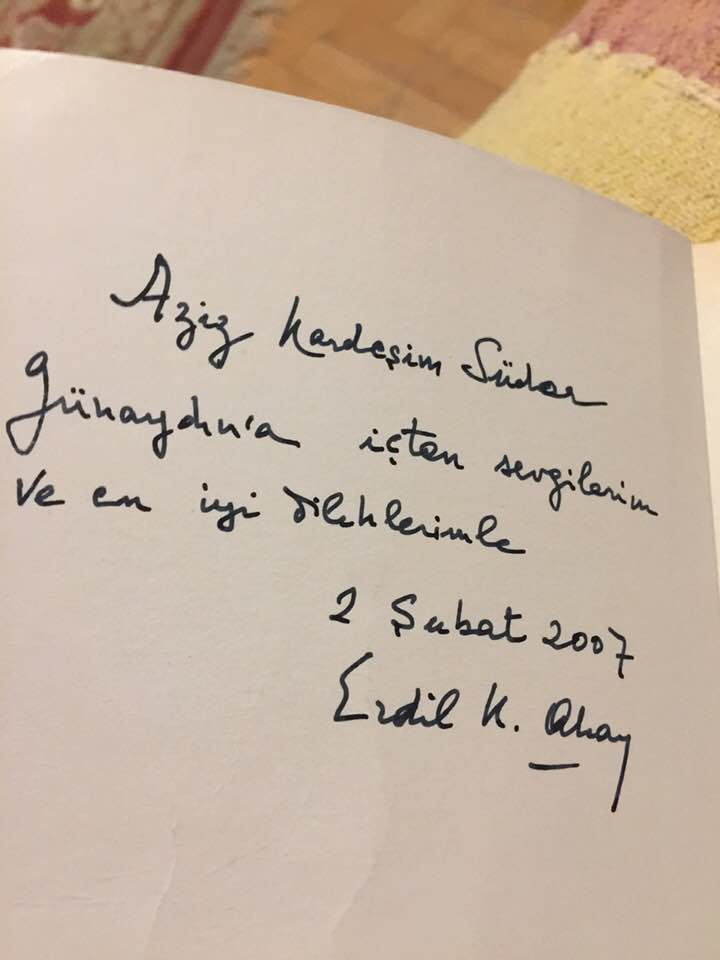 Aziz Kardeşim Südor
Günaydın'a içten sevgilerim
ve en iyi dileklerimle
2 Şubat 2007
Erdil K. Akay